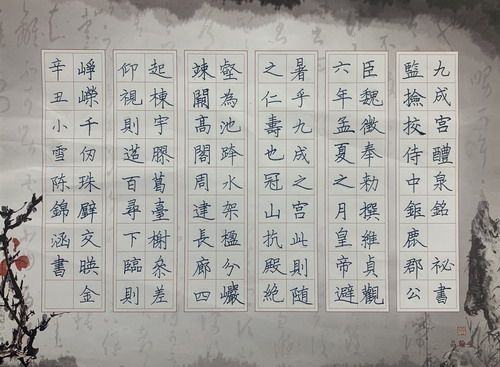 九成宮醴泉銘 祕書
監撿挍侍中鉅鹿郡公
臣魏徵奉勑撰維貞觀
六年孟夏之月皇帝避
暑乎九成之宮此則隨
之仁壽也冠山抗殿絕
壑為池跨水架楹分巖
竦闕高閣周建長廊四
起棟宇膠葛臺榭叅差
仰視則百尋下臨則
崢嶸千仞珠壁交暎金
辛丑小雪陈錦涵書